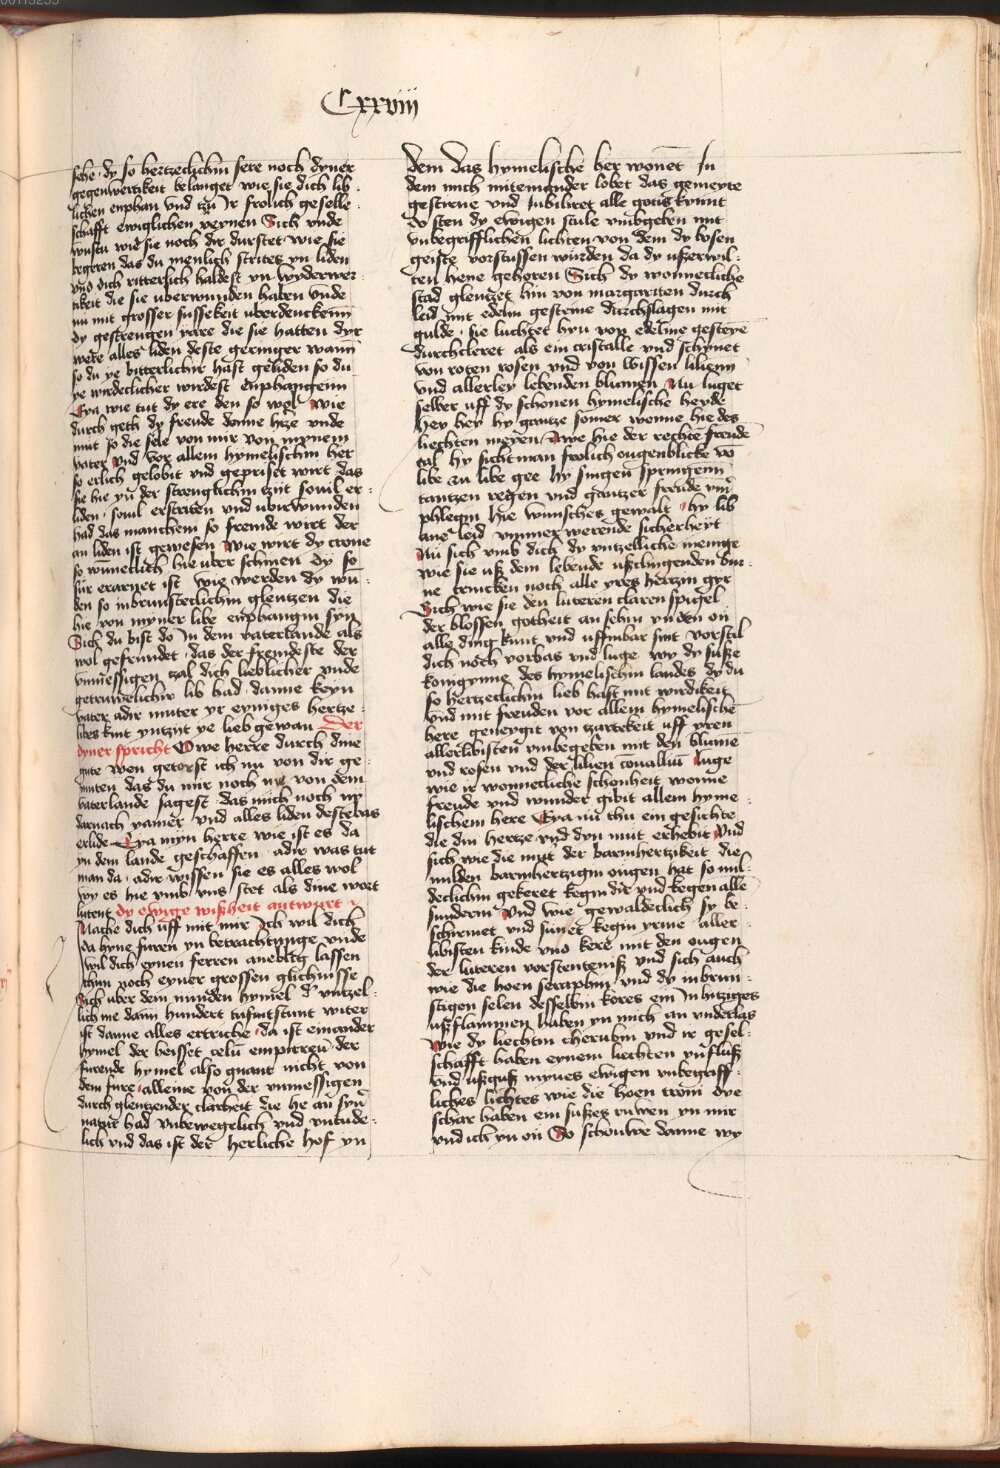 Cxxviii
sehe dy so hertzeclichin sere noch dyner
gegenwertikeit belanget wie sie dich lib
lichen enphan vnd tzu Ir frolich geselle
schafft ewiglichen Sich vnde
wustu wie sie noch dir durstet wie sie
begeren das du menlich strites yn liden
vnd dich ritterlich haldest yn wyderwer
tikeit die sie vberwunden haben vnde
nu mit grosser sussekeit vberdenckenn
dy gestrengen yare die sie hatten dyr
were alles liden deste geringer wann
so du ye bitterlichir hast geliden so du
ye wirdeclicher wirdest enphangenn
Eya wie tut dy ere den so wol wie
durch geth dy freude danne hrze vnde
mut so die sele von mir von mynem
vater vnd vor allem hymelischin her
so erlich gelobit vnd gepriset wirt das
sie hie yn der strenglichin tzijt souil er
liden souil erstriten vnd vbirwunden
had das manchem so fremde wirt der
an liden ist gewesen wie wirt dy crone
so wunneclich hie vber schinen dy so
sur erarnet ist wie werden dy wu
den so inbrunsteclichin glentzen die
hie von myner libe enphangin syn
Sich du bist do in dem vaterlande als
wol gefrundet das der fremdeste der
vnmessigen tzal dich lieblicher vnde
getruwelicher lib had danne keyn
vater adir muter yr eyniges hertze
libes kint yntzut ye lieb gewan Der
dyner spricht Owe herre durch dine
gute wen getorst ich nu von dir ge
muten das du mir noch me von dem
vaterlande sagest das mich noch yp
darnach yamer vnd alles liden destebas
erlide Eya myn herre wie ist es da
yn dem lande geschaffen adir was tut
man da adir wissen sie es alles wol
wy es hie vmb vns stet als dine wort
lutent dy ewige wisheit antwurt
Mache dich uff mit mir Ich wil dich
da hyne furen yn betrachtunge vnde
wil dich eynen ferren aneblig lassen
thun noch eyner grossen glichnisse
Sich vber dem nunden hymel der vntzel
lich me dann hundert tusuntstunt witer
ist danne alles ertriche da ist ein ander
hymel der heisset celum empireum der
furende hymel also gnant nicht von
dem fure alleine von der vnmessigen
durch glentzender clarheit die he an syner
natur had vnbewegelich vnd vntude
lich vnd das ist der herliche hof yn
dem das hymelische her wonet In
dem mich miteinander lobet das gemeyte
gestirne vnd Iubiliret alle gotis kynnt
do sten dy ewigen stule vmbgeben mit
vnbegrifflichen lichten von dem dy bosen
geiste vorstussen wurden da dy usserwil
ten hene gehoren Sich dy wonnecliche
stad glentzet hin von margariten durch
leid mit edelm gesteine durchslagen mit
gulde sie luchtet hyn von edelme gesteyne
durchcleret als ein cristalle vnd schynet
von roten rosen vnd von wissen lilienn
vnd allerley lebenden blumen Nu luget
selber uff dy schonen hymelische heyde
hey hey hy gantze somer wonne hie des
liechten meyen Awe hie der rechte freude
tal hy sicht man frolich ougenblicke von
libe zu libe gee hy singen springenn
tantzen reyen vnd gantzer freude vmer
phlegin hie wunsches gewalt hy lib
ane leid vmmer werende sicherheyt
Nu sich vmb dich dy vntzelliche menige
wie sie uss dem lebende ussclingenden bur
ne trincken noch alle yres hertzin gyr
Sich wie sie den luteren claren spigel
der blossen gotheit an sehin yn den on
alle ding kunt vnd uffinbar sint vorstil
dich noch vorbas vnd luge wy dy susse
konigynne des hymelischin landes dy du
so hertzeclichin lieb hast mit wirdikeit
vnd mit freuden vor allem hymelische
here geneygit von tzartekeit uff yren
allerlibisten vmbegeben mit den blumen
vnd rosen vnd der lilien conallium luge
wie ir wonnecliche schonheit wonne
freude vnd wunder gibit allem hyme
lischem here Eya nu thu ein gesichte
die din hertze vnd dyn mut erhebit vnd
sich wie die mut der barmhertzikeit die
milden barmhertzigin ougen hat so mil
declichin gekeret kegin dir vnd kegen alle
sundern vnd wie gewaldeclich sy be
schirmet vnd sunet kegin yrme aller
libisten kinde vnd kere mit den ougen
der luteren vorstentenisz vnd sich auch
wie die hoen seraphin vnd dy inbrun
stigen selen desselbin kores ein In hitziges
ussflammen haben yn mich an vnderlas
wie dy liechtin cherubin vnd ir gesel
schafft haben eynem liechten ynflusz
vnd uszgusz mynes ewigen vnbegriff
liches lichtes wie die hoen tronn dye
schar haben ein susses ruwen yn mir
vnd ich yn on So schouwe danne wy